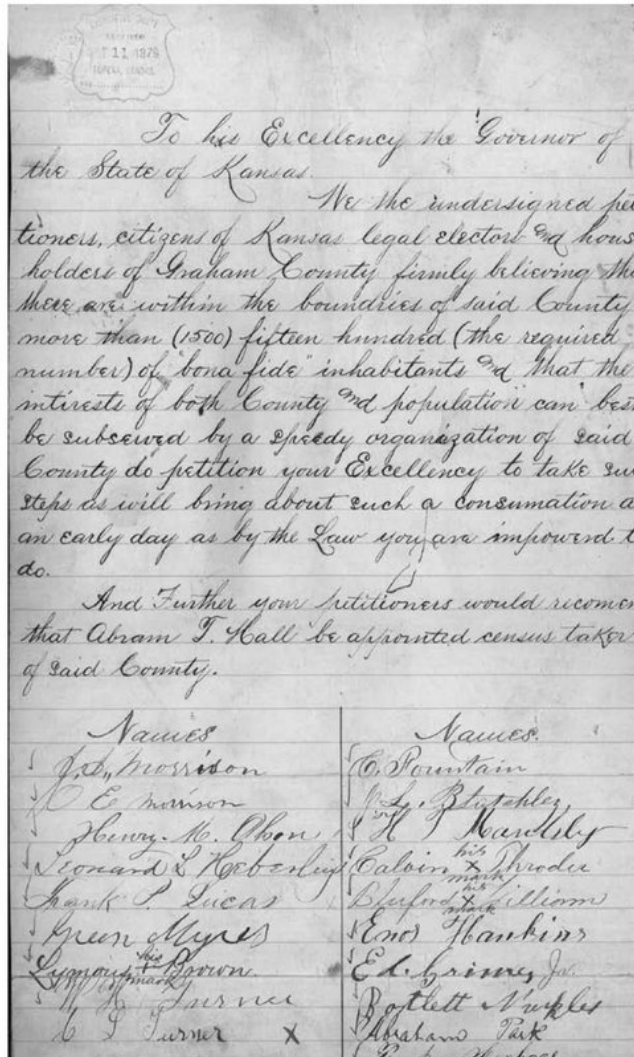 RECEIVED
11 1879
TOPEKA, KANSAS
To his Excellency the Governor of
the State of Kansas.
We the undersigned pe
tioners, citizens of Kansas legal electors and hous
holders of Graham County firmly believing tha
there are within the boundries of said County
more than (1500) fifteen hundred (the required
number) of "bona fide" inhabitants and that the
intirests of both County and population can bes
be subserved by a speedy organization of said
County do petition your Excellency to take su
steps as will bring about such a consumation a
an early day as by the Law you are impowerd t
do.
And Further your petitioners would recomen
that Abram T. Hall be appointed census taker
of said County.
Names
J. S. Morrison
C E Morrison
Henry. M. Olson
Leonard L Heberleigh
Frank P. Lucas
Green Myres
Lymous his + mark Brown.
Turner
C L Turner X
Names.
C. Fountain
H Mandsly
Calvin his x mark Throder
Bluford his x mark
Enos Hankins
Ed. Grimes, Jr.
Bartlett Nuckles
Abraham Park